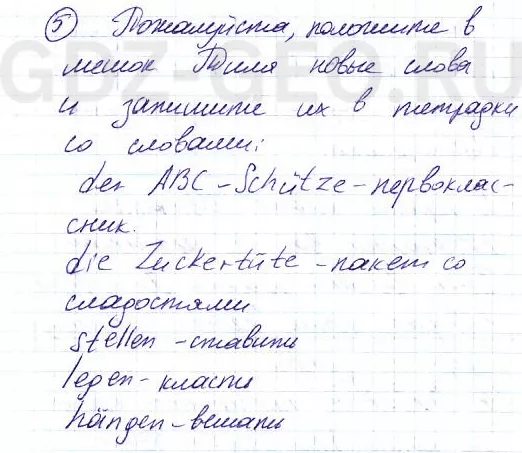 5 Пожалуйста, положите в
мешок Тиля новые слова
и запишите их в тетрадки
со словами:
der ABC-Schütze-первоклас-
сник.
die Zuckertüte-пакет со
сладостями
stellen-ставить
legen-класть
hängen-вешать